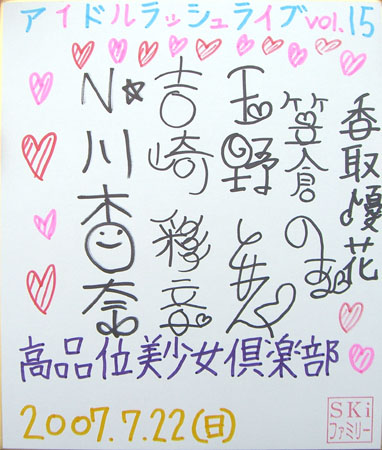 アイドルラッシュライブvol.15
香取優花
笠倉
玉野
吉崎
N☆川杏奈
高品位美少女倶楽部
2007.7.22(日)
SKi
ファミリー